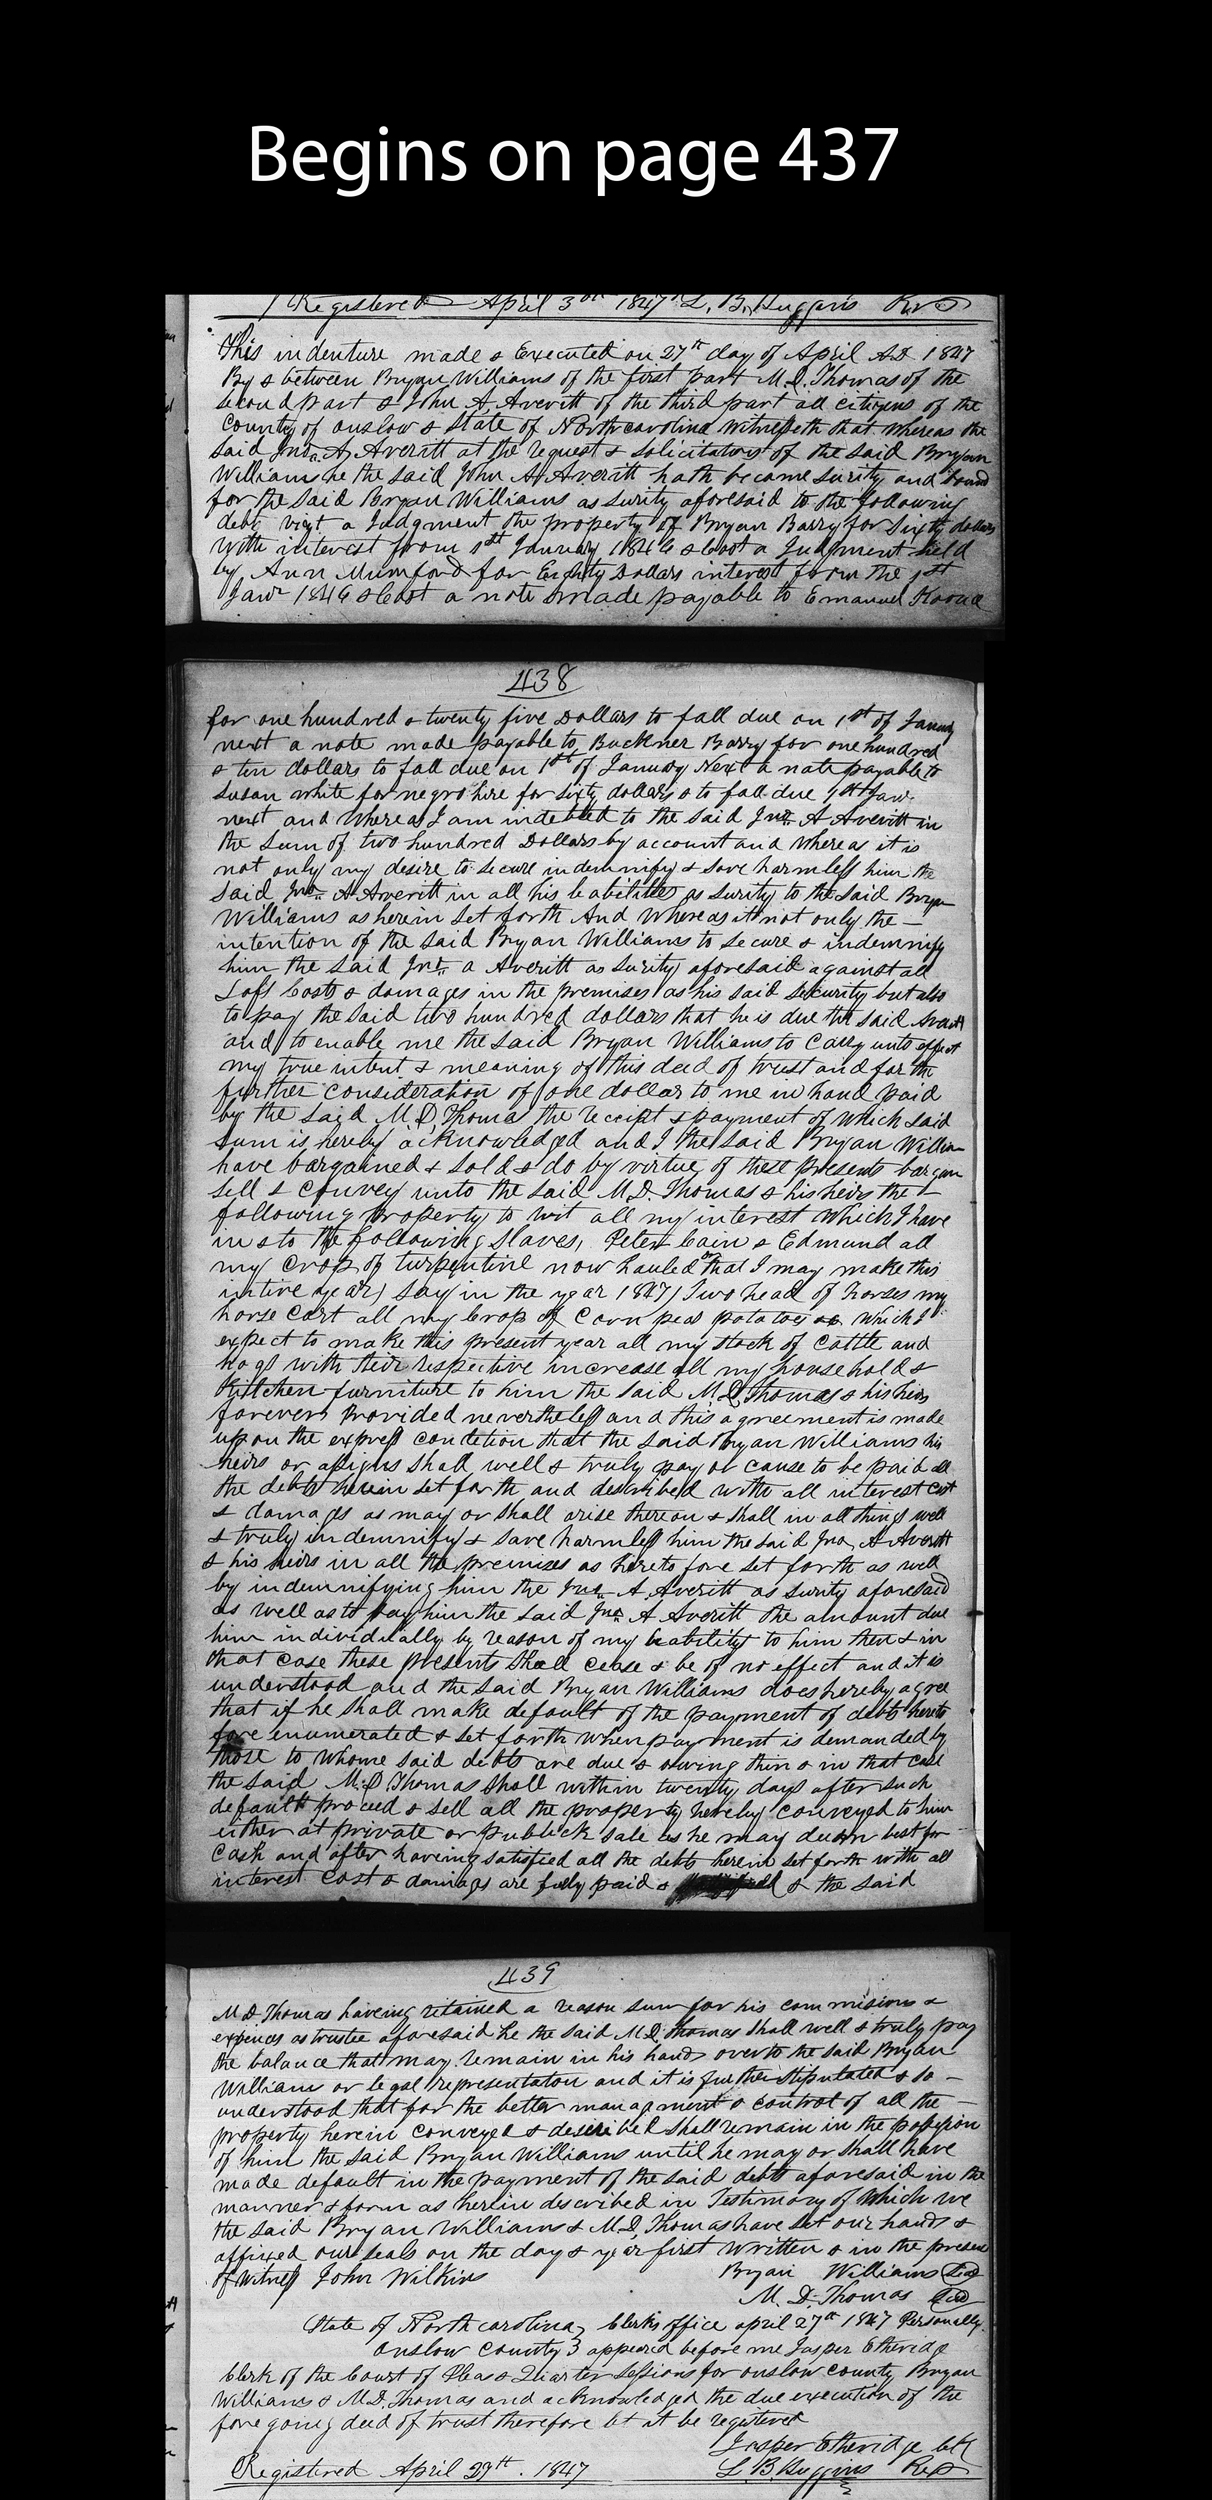 Begins on page 437
Registered April 3rd 1847 L. B. Huggins Reg
This indenture made & Executed on 27th day of April A.D 1847
By & between Bryan Williams of the first part M. D. Thomas of the
second part & John A, Averitt of the third part all citizens of the
County of Onslow & State of North carolina witnesseth that whereas the
said Jno. A, Averitt at the request & solicitation of the said Bryan
Williams he the said John A Averitt hath became surity and bound
for the said Bryan Williams as surity aforesaid to the following
debt viz,t a Judgment the property of Bryan Barry for Sixty dollars
with interest from 1st January 1846 & Cost a Judgment held
by Ann Mumford for Eighty Dollars interest form the 1st
Jany 1846 & Cost a note made payable to Emanuel
438
for one hundred & twenty five Dollars to fall due on 1st of January
next a note made payable to Buckner Barry for one hundred
& ten dollars to fall due on 1st of January Next a note payable to
Susan white for negro hire for sixty dollars & to fall due 1st Jan.
next and whereas I am indebted to the said Jno. A Averitt in
the sum of two hundred Dollars by account and whereas it is
not only my desire to secure indemnify & save harmless him the
said Jno. A Averitt in all his liabilities as surity to the said Bryan
Williams as herein set forth And whereas it not only the
intention of the said Bryan Williams to secure & indemnify
him the said Jno. a Averitt as surity aforesaid against all
Loss Costs & damages in the premises as his said security but also
to pay the said two hundred dollars that he is due the said Averitt
and to enable me the said Bryan Williams to Carry unto effect
my true intent & meaning of this deed of trust and for the
further consideration of one dollar to me in hand paid
by the said M. D, Thomas the receipt & payment of which said
sum is hereby acknowledged and I the said Bryan William
have bargained & sold & do by virtue of these presents bargan
sell & convey unto the said M. D. Thomas & his heirs the
following property to wit all my interest which I have
in & to the following slaves, Peter Cain & Edmund all
my crop of turpentine now hauled or that I may make this
intire year, say in the year 1847, Two head of horses my
horse cart all my Crop of Corn peas potatoes &c which I
expect to make this present year all my stock of Cattle and
hogs with their respective increase all my household &
Kitchen furniture to him the said M. D, Thomas & his heirs
forever, Provided nevertheless and this agreement is made
upon the express condetion that the said Bryan Williams his
heirs or assigns shall well & truly pay or cause to be paid all
the debts herein set forth and described with all interest cost
& damages as may or shall arise thereon & shall in all things well
& truly indemnify & save harmless him the said Jno, A Averitt
& his heirs in all the premises as hereto fore set forth as well
by indemnifying him the Jno. A. Averitt as surity aforesaid
as well as to pay him the said Jno. A Averitt the amount due
him individually by reason of my liability to him then & in
that case these presents shall cease & be of no effect and it is
understood and the said Bryan Williams does hereby agree
that if he shall make default of the payment of debts hereto
fore enumerated & set forth when payment is demanded by
those to whome said debts are due & owing then & in that case
the said M. D Thomas shall within twenty days after such
default proceed & sell all the property hereby conveyed to him
either at private or publick sale as he may deem best for
Cash and after haveing satisfied all the debts herein set forth with all
interest cost & damages are fully paid & & the said
439
M D Thomas haveing retained a reason sum for his commisions &
expences as trustee aforesaid he the said M. D. Thomas shall well & truly pay
the balance that may remain in his hands over to the said Bryan
William or legal representaton and it is further stipulated & so
understood that for the better managment & control of all the
property herein conveyed & described shall remain in the possession
of him the said Bryan Williams until he may or shall have
made default in the payment of the said debts aforesaid in the
manner & form as herein described in Testimony of which we
the said Bryan Williams & M. D, Thomas have set our hands &
affixed our seals on the day & year first written & in the presence
of Witness John Wilkins Bryan Williams Seal
M. D. Thomas Seal
State of North carolina, Clerks office april 27th 1847 Personally
Onslow County } appeared before me Jasper Etheridge
Clerk of the Court of Pleas & Quarter Sessions for onslow county Bryan
Williams & M. D. Thomas and acknowledged the due execution of the
foregoing deed of trust therefore let it be registered
Jasper Etheridge Clk
Registered April 29th. 1847 L. B. Huggins Reg